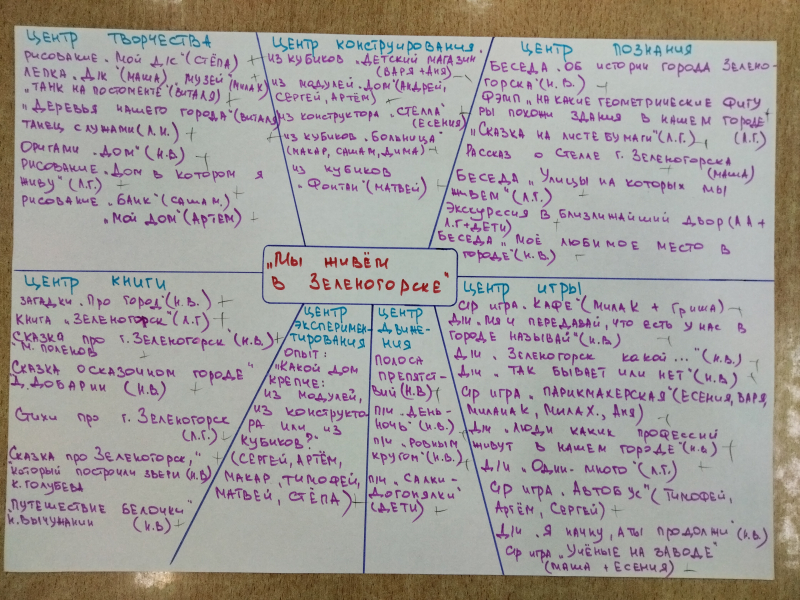 ЦЕНТР ТВОРЧЕСТВА
РИСОВАНИЕ „МОЙ Д/С" (СТЁПА) +
ЛЕПКА „Д/К" (МАША) „МУЗЕЙ" (МИЛА К)
„ТАНК НА ПОСТОМЕНТЕ" (ВИТАЛЯ)
„ДЕРЕВЬЯ НАШЕГО ГОРОДА" (ВИТАЛЯ)
ТАНЕЦ С ЛУЖАМИ (Л.И.) +
ОРИГАМИ „ДОМ" (Н.В.) +
РИСОВАНИЕ „ДОМ В КОТОРОМ Я
ЖИВУ" (Л.Г.) +
РИСОВАНИЕ „БАНК" (САША М.) +
„МОЙ ДОМ" (АРТЁМ) +
ЦЕНТР КОНСТРУИРОВАНИЯ.
ИЗ КУБИКОВ „ДЕТСКИЙ МАГАЗИН
(ВАРЯ + АНЯ)
ИЗ МОДУЛЕЙ „ДОМ" (АНДРЕЙ,
СЕРГЕЙ, АРТЁМ) +
ИЗ КОНСТРУКТОРА „СТЕЛЛА"
(ЕСЕНИЯ) +
ИЗ КУБИКОВ „БОЛЬНИЦА"
(МАКАР, САША М, ДИМА) +
ИЗ КУБИКОВ
„ФОНТАН" (МАТВЕЙ) +
ЦЕНТР ПОЗНАНИЯ
БЕСЕДА „ОБ ИСТОРИИ ГОРОДА ЗЕЛЕНО-
ГОРСКА" (Н.В.) +
ФЭМП „НА КАКИЕ ГЕОМЕТРИЧЕСКИЕ ФИГУ
РЫ ПОХОЖИ ЗДАНИЯ В НАШЕМ ГОРОДЕ"
(Л.Г.)
„СКАЗКА НА ЛИСТЕ БУМАГИ" (Л.Г.) +
РАССКАЗ О СТЕЛЛЕ Г. ЗЕЛЕНОГОРСКА
(МАША)
БЕСЕДА „УЛИЦЫ НА КОТОРЫХ МЫ
ЖИВЁМ" (Л.Г.) +
ЭКССУРССИЯ В БЛИЗЛИЖАЙШИЙ ДВОР (Л А +
Л.Г + ДЕТИ) +
БЕСЕДА „МОЁ ЛЮБИМОЕ МЕСТО В
ГОРОДЕ" (Н.В.) +
„МЫ ЖИВЁМ
В ЗЕЛЕНОГОРСКЕ"
ЦЕНТР КНИГИ
ЗАГАДКИ „ПРО ГОРОД" (Н.В.) +
КНИГА „ЗЕЛЕНОГОРСК" (Л.Г) +
СКАЗКА ПРО Г. ЗЕЛЕНОГОРСК" (Н.В.) +
М. ПОЛЕНОВ +
СКАЗКА О СКАЗОЧНОМ ГОРОДЕ"
Д. ДОБАРИН (Н.В) +
СТИХИ ПРО Г. ЗЕЛЕНОГОРСК
(Л.Г.) +
СКАЗКА ПРО ЗЕЛЕНОГОРСК,"
КОТОРЫЙ ПОСТРОИЛИ ЗВЕРИ (Н.В)
К. ГОЛУБЕВА +
„ПУТЕШЕСТВИЕ БЕЛОЧКИ"
Н. ВЫЧУЖАНИН (Н.В) +
ЦЕНТР
ЭКСПЕРИМЕН-
ТИРОВАНИЯ
ОПЫТ:
„КАКОЙ ДОМ
КРЕПЧЕ:
ИЗ МОДУЛЕЙ,
ИЗ КОНСТРУКТО-
РА ИЛИ ИЗ
КУБИКОВ?"
(СЕРГЕЙ, АРТЁМ,
МАКАР, ТИМОФЕЙ,
МАТВЕЙ, СТЁПА) +
ЦЕНТР
ДВИЖЕ-
НИЯ
ПОЛОСА
ПРЕПЯТСТ-
ВИЙ (Н.В) +
П/И „ДЕНЬ-
НОЧЬ" (Н.В.) +
П/И „РОВНЫМ
КРУГОМ" (Н.В.) +
П/И „САЛКИ-
ДОГОНЯЛКИ"
(ДЕТИ) +
ЦЕНТР ИГРЫ
С/Р ИГРА „КАФЕ" (МИЛА К + ГРИША) +
Д/И „МЯЧ ПЕРЕДАВАЙ, ЧТО ЕСТЬ У НАС В
ГОРОДЕ НАЗЫВАЙ" (Н.В.) +
Д/И „ЗЕЛЕНОГОРСК КАКОЙ ..." (Н.В.) +
Д/И „ТАК БЫВАЕТ ИЛИ НЕТ" (Н.В.) +
С/Р ИГРА „ПАРИКМАХЕРСКАЯ" (ЕСЕНИЯ, ВАРЯ,
МИЛАНА К, МИЛА Х., АНЯ) +
Д/И „ЛЮДИ КАКИХ ПРОФЕССИЙ
ЖИВУТ В НАШЕМ ГОРОДЕ" (Н.В) +
Д/И „ОДИН - МНОГО" (Л.Г.) +
С/Р ИГРА „АВТОБУС" (ТИМОФЕЙ,
АРТЁМ, СЕРГЕЙ) +
Д/И „Я НАЧНУ, А ТЫ ПРОДОЛЖИ" (Н.В.)
С/Р ИГРА „УЧЁНЫЕ НА ЗАВОДЕ"
(МАША + ЕСЕНИЯ) +